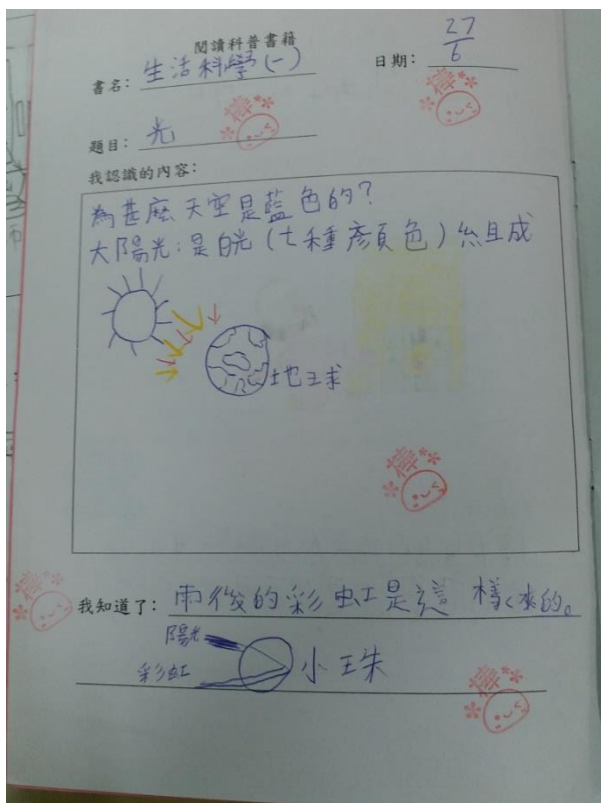 閱讀科普書籍
書名: 生活科學(一)
日期: 27/6
棒
棒
題目: 光
我認識的內容:
為甚麼天空是藍色的?
大陽光:是白光(七種顏色)組成
地球
棒
棒
我知道了: 雨後的彩虹是這樣來的。
陽光
彩虹
小珠
棒